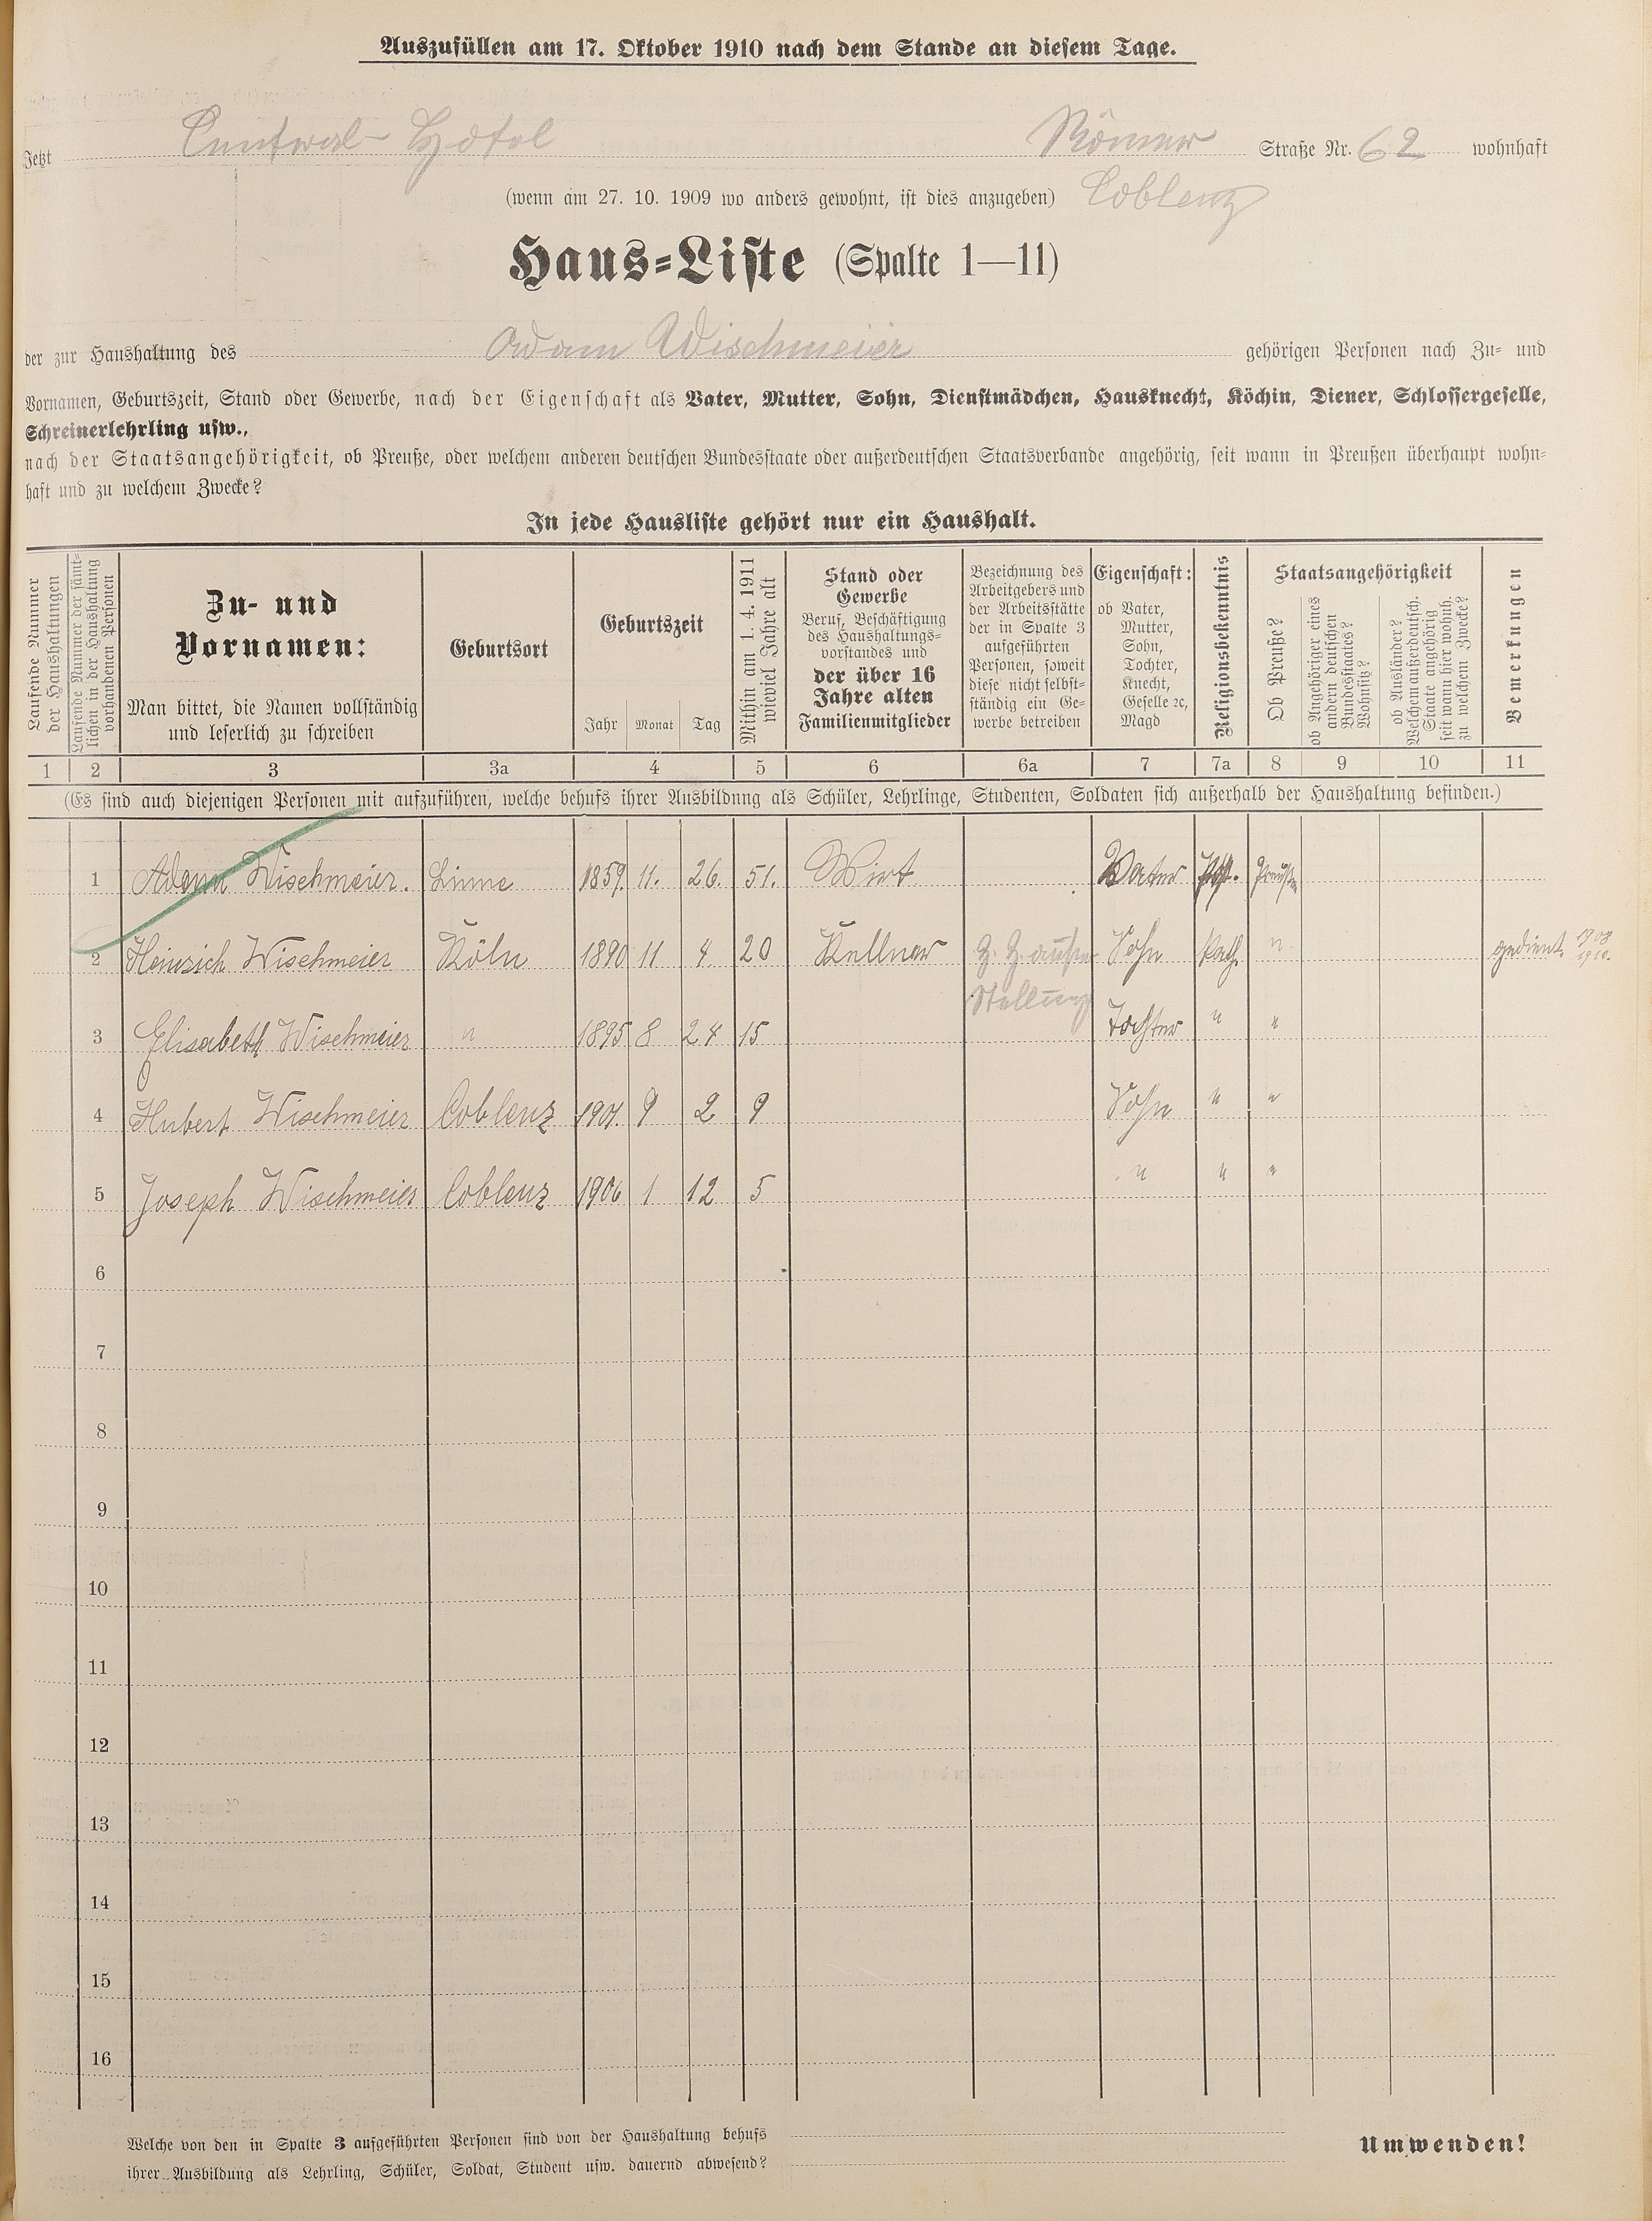 Auszufüllen am 17. Oktober 1910 nach dem Stande an diesem Tage.
Jetzt Central-Hotel Römer Straße Nr. 62 wohnhaft
(wenn am 27. 10. 1909 wo anders gewohnt, ist dies anzugeben) Coblenz
Haus-Liste (Spalte 1—11)
der zur Haushaltung des Adam Wischmeier gehörigen Personen nach Zu- und
Vornamen, Geburtszeit, Stand oder Gewerbe, nach der Eigenschaft als Vater, Mutter, Sohn, Dienstmädchen, Hausknecht, Köchin, Diener, Schlossergeselle,
Schreinerlehrling usw.,
nach der Staatsangehörigkeit, ob Preuße, oder welchem anderen deutschen Bundesstaate oder außerdeutschen Staatsverbande angehörig, seit wann in Preußen überhaupt wohn-
haft und zu welchem Zwecke?
In jede Hausliste gehört nur ein Haushalt.
Laufende Nummer
der Haushaltungen
Laufende Nummer der sämt-
lichen in der Haushaltung
vorhandenen Personen
Zu- und
Vornamen:
Man bittet, die Namen vollständig
und leserlich zu schreiben
Geburtsort
Geburtszeit
Jahr Monat Tag
Mithin am 1. 4. 1911
wieviel Jahre alt
Stand oder
Gewerbe
Beruf, Beschäftigung
des Haushaltungs-
vorstandes und
der über 16
Jahre alten
Familienmitglieder
Bezeichnung des
Arbeitgebers und
der Arbeitsstätte
der in Spalte 3
aufgeführten
Personen, soweit
diese nicht selbst-
ständig ein Ge-
werbe betreiben
Eigenschaft:
ob Vater,
Mutter,
Sohn,
Tochter,
Knecht,
Geselle ꝛc,
Magd
Religionsbekenntnis
Staatsangehörigkeit
Ob Preuße?
ob Angehöriger eines
andern deutschen
Bundesstaates?
Wohnsitz?
ob Ausländer?
Welchem außerdeutsch.
Staate angehörig
seit wann hier wohnh.
zu welchem Zwecke?
Bemerkungen
1 2 3 3a 4 5 6 6a 7 7a 8 9 10 11
(Es sind auch diejenigen Personen mit aufzuführen, welche behufs ihrer Ausbildung als Schüler, Lehrlinge, Studenten, Soldaten sich außerhalb der Haushaltung befinden.)
1 Adam Wischmeier. Linne 1859. 11. 26. 51. Wirt Vater Preuße
2 Heinrich Wischmeier Köln 1890 11 4. 20 Kellner z. Z. außer Sohn Kath. " gedient. 1908 1910.
Stellung
3 Elisabeth Wischmeier " 1895 8 24 15 Tochter " "
4 Hubert Wischmeier Coblenz 1901. 9 2 9 Sohn " "
5 Joseph Wischmeier Coblenz 1906 1 12 5 " " "
6
7
8
9
10
11
12
13
14
15
16
Welche von den in Spalte 3 aufgeführten Personen sind von der Haushaltung behufs
ihrer Ausbildung als Lehrling, Schüler, Soldat, Student usw. dauernd abwesend?
Umwenden!